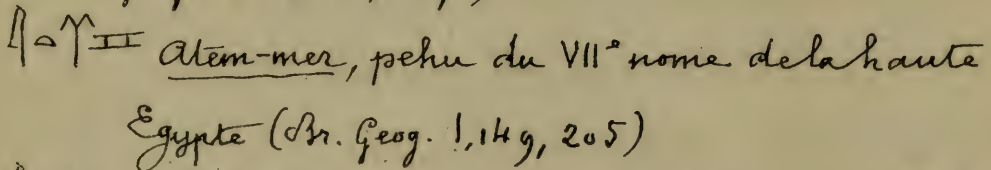 Atem-mer, pehu du VII° nome de la haute
Egypte (Br. Geog. I, 149, 205)